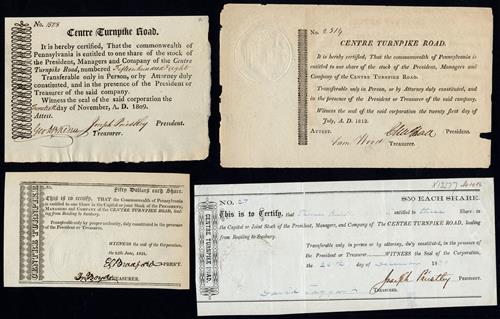 No. 1508
Centre Turnpike Road.
It is hereby certified, That the commonwealth of
Pennsylvania is entitled to one share of the stock of
the President, Managers and Company of the Centre
Turnpike Road, numbered Fifteen hundred Eight
Transferable only in Person, or by Attorney duly
constituted, and in the presence of the President or
Treasurer of the said company.
Witness the seal of the said corporation the
day of November, A. D. 1809.
Joseph Priestley President.
Treasurer.
No. 2514
CENTRE TURNPIKE ROAD.
It is hereby certified, That the commonwealth of Pennsylvania is
entitled to one share of the stock of the President, Managers and
Company of the CENTRE TURNPIKE ROAD.
Transferable only in Person, or by Attorney duly constituted, and
in the presence of the President or Treasurer of the said company.
Witness the seal of the said corporation the twenty first day of
July, A. D. 1812.
Attest, President.
Sam Wood Treasurer.
CENTRE TURNPIKE
Fifty Dollars each Share.
This is to certify, THAT the Commonwealth of Pennsylvania
is entitled to one share in the Capital or joint Stock of the PRESIDENT,
MANAGERS and COMPANY of the CENTRE TURNPIKE ROAD, leading
from Reading to Sunbury.
Transferable only in person or by attorney, duly constituted in the presence
of the President or Treasurer.
WITNESS the seal of the Corporation
PRES'T.
TREASURER.
CENTRE TURNPIKE ROAD.
NO. 27
$50 EACH SHARE.
This is to Certify, that entitled to three Share in
the Capital or Joint Stock of the President, Managers, and Company of The CENTRE TURNPIKE ROAD, leading
from Reading to Sunbury.
Transferable only in person or by attorney, duly constituted, in the presence of the
President or Treasurer.—WITNESS the Seal of the Corporation
the 26th day of December
Joseph Priestley PRESIDENT.
David Taggart TREASURER.